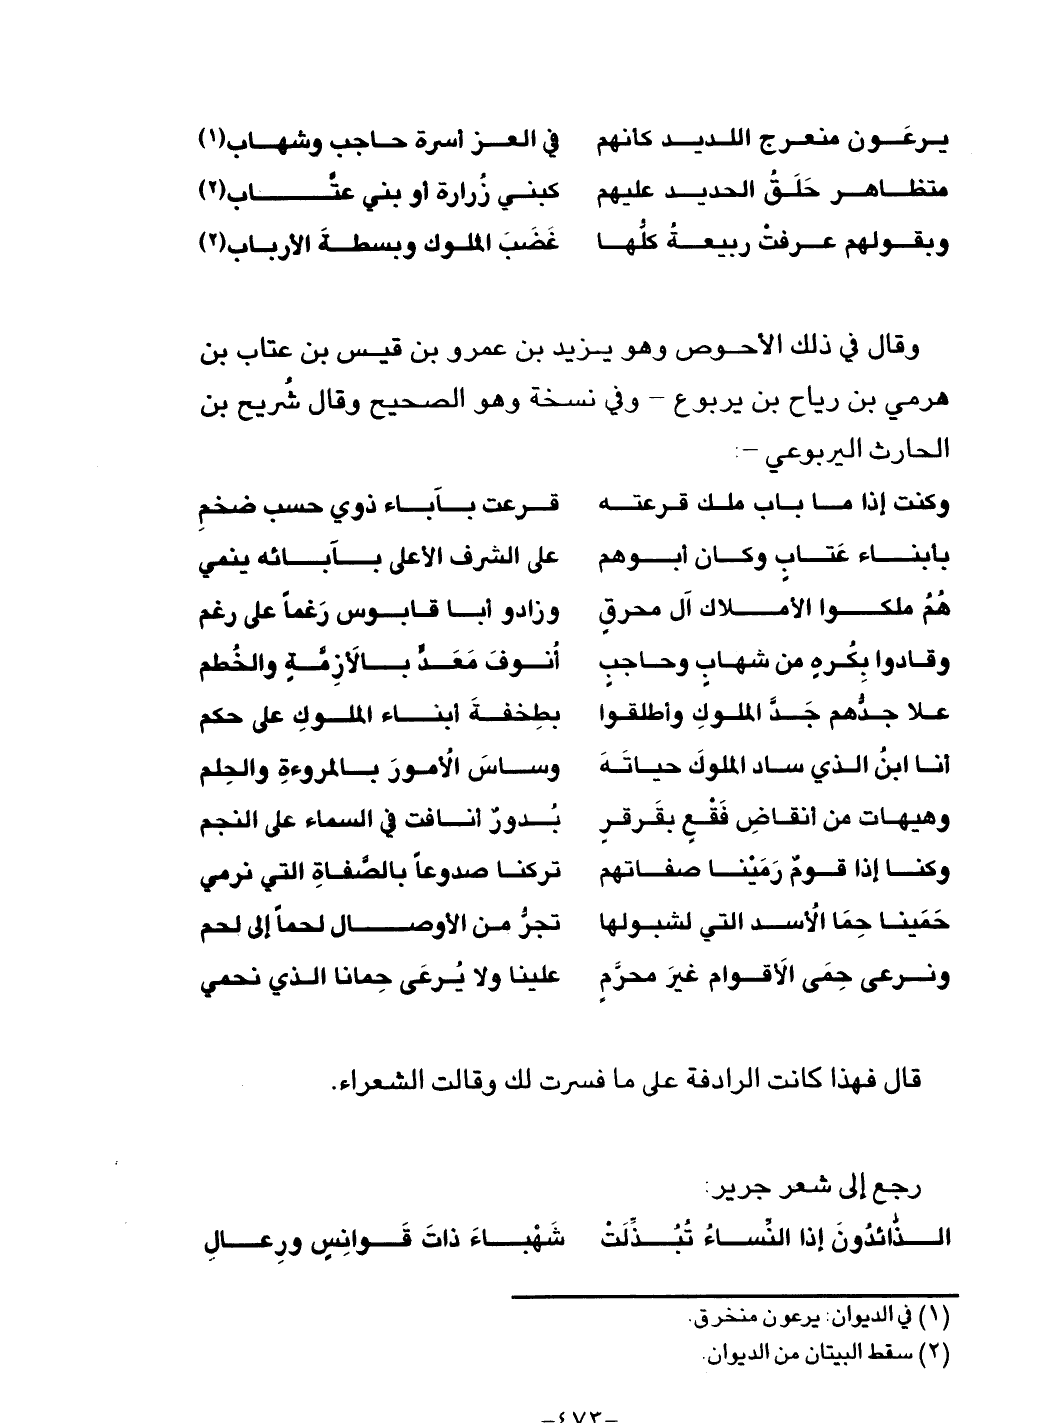 يرعَون منعرج اللديد كانهم    في العز أسرة حاجب وشهاب(١)
متظاهر حَلَقُ الحديد عليهم    كبني زُرارة أو بني عتَّاب(٢)
وبقولهم عرفتْ ربيعةُ كلُّها    غَضَبَ الملوك وبسطةَ الأرباب(٢)
وقال في ذلك الأحوص وهو يزيد بن عمرو بن قيس بن عتاب بن
هرمي بن رياح بن يربوع – وفي نسخة وهو الصحيح وقال شُريح بن
الحارث اليربوعي –:
وكنت إذا ما باب ملك قرعته    قرعت بآباء ذوي حسب ضخمِ
بأبناء عَتابٍ وكان أبوهم    على الشرف الأعلى بآبائه ينمي
هُمُ ملكوا الأملاك آل محرقٍ    وزادو أبا قابوس رَغماً على رغم
وقادوا بِكُرهٍ من شهابٍ وحاجبٍ    أُنوفَ مَعَدٍّ بالَأزِمَّةِ والخُطم
علا جدُّهم جَدَّ الملوكِ وأطلقوا    بطِخفةَ أبناء الملوكِ على حكم
أنا ابنُ الذي ساد الملوكَ حياتَهَ    وساسَ الُأمورَ بالمروءةِ والحِلم
وهيهات من أنقاضِ فَقْعٍ بقَرقرٍ    بُدورٌ أنافت في السماء على النجم
وكنا إذا قومٌ رَمَيْنا صفاتهم    تركنا صدوعاً بالصَّفاةِ التي نرمي
حَمَينا حِمَا الُأسد التي لشبولها    تجرُّ من الأوصال لحماً إلى لحم
ونرعى حِمَى الَأقوام غيرَ محرَّمٍ    علينا ولا يُرعَى حِمانا الذي نحمي
قال فهذا كانت الرادفة على ما فسرت لك وقالت الشعراء.
رجع إلى شعر جرير:
الذَّائدُونَ إذا النِّساءُ تُبُذِّلَتْ    شَهْباءَ ذاتَ قَوانِسٍ ورِعالِ
(١) في الديوان: يرعون منخرق.
(٢) سقط البيتان من الديوان.
–٤٧٣–